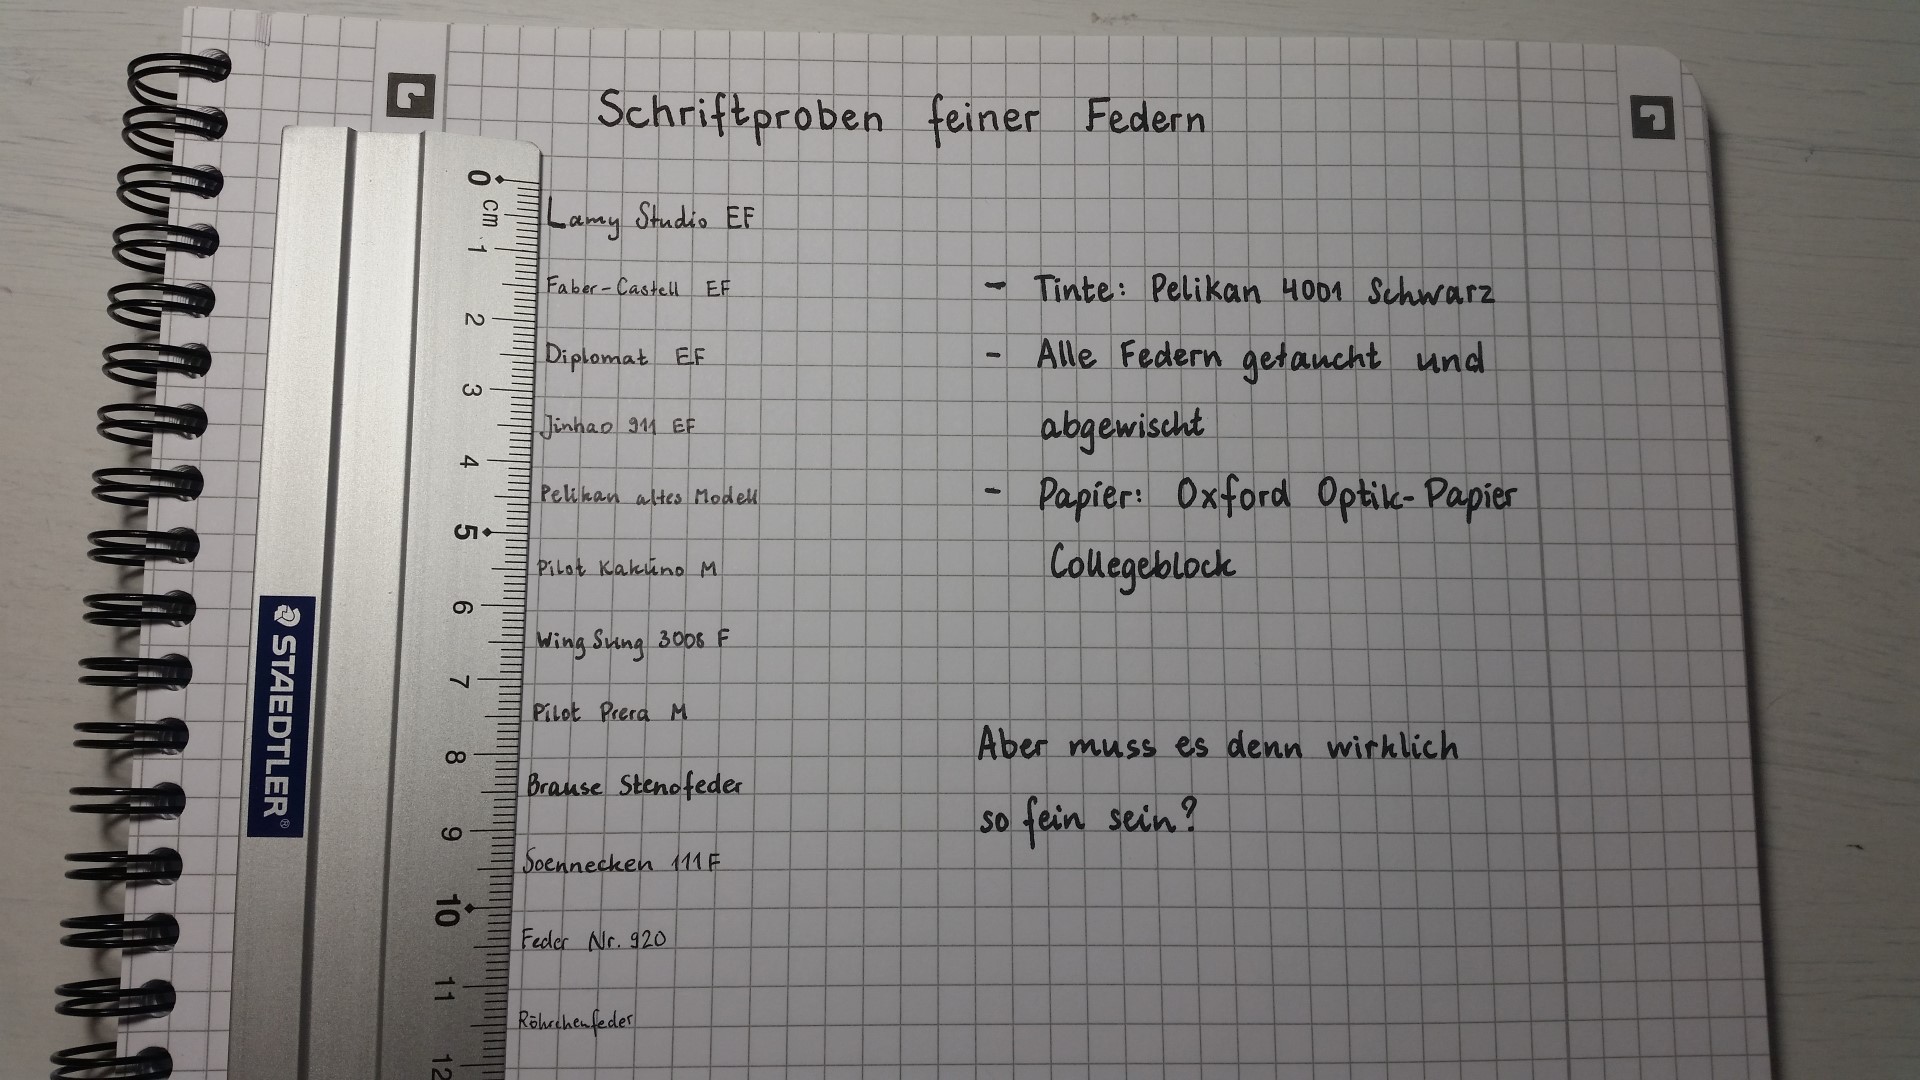 Schriftproben feiner Federn
0
cm
1
2
3
4
5
6
7
8
9
10
11
12
STAEDTLER®
Lamy Studio EF
Faber-Castell EF
Diplomat EF
Jinhao 911 EF
Pelikan altes Modell
Pilot Kaküno M
Wing Sung 3008 F
Pilot Prera M
Brause Stenofeder
Soennecken 111 F
Feder Nr. 920
Röhrchenfeder
- Tinte: Pelikan 4001 Schwarz
- Alle Federn getaucht und
abgewischt
- Papier: Oxford Optik-Papier
Collegeblock
Aber muss es denn wirklich
so fein sein?